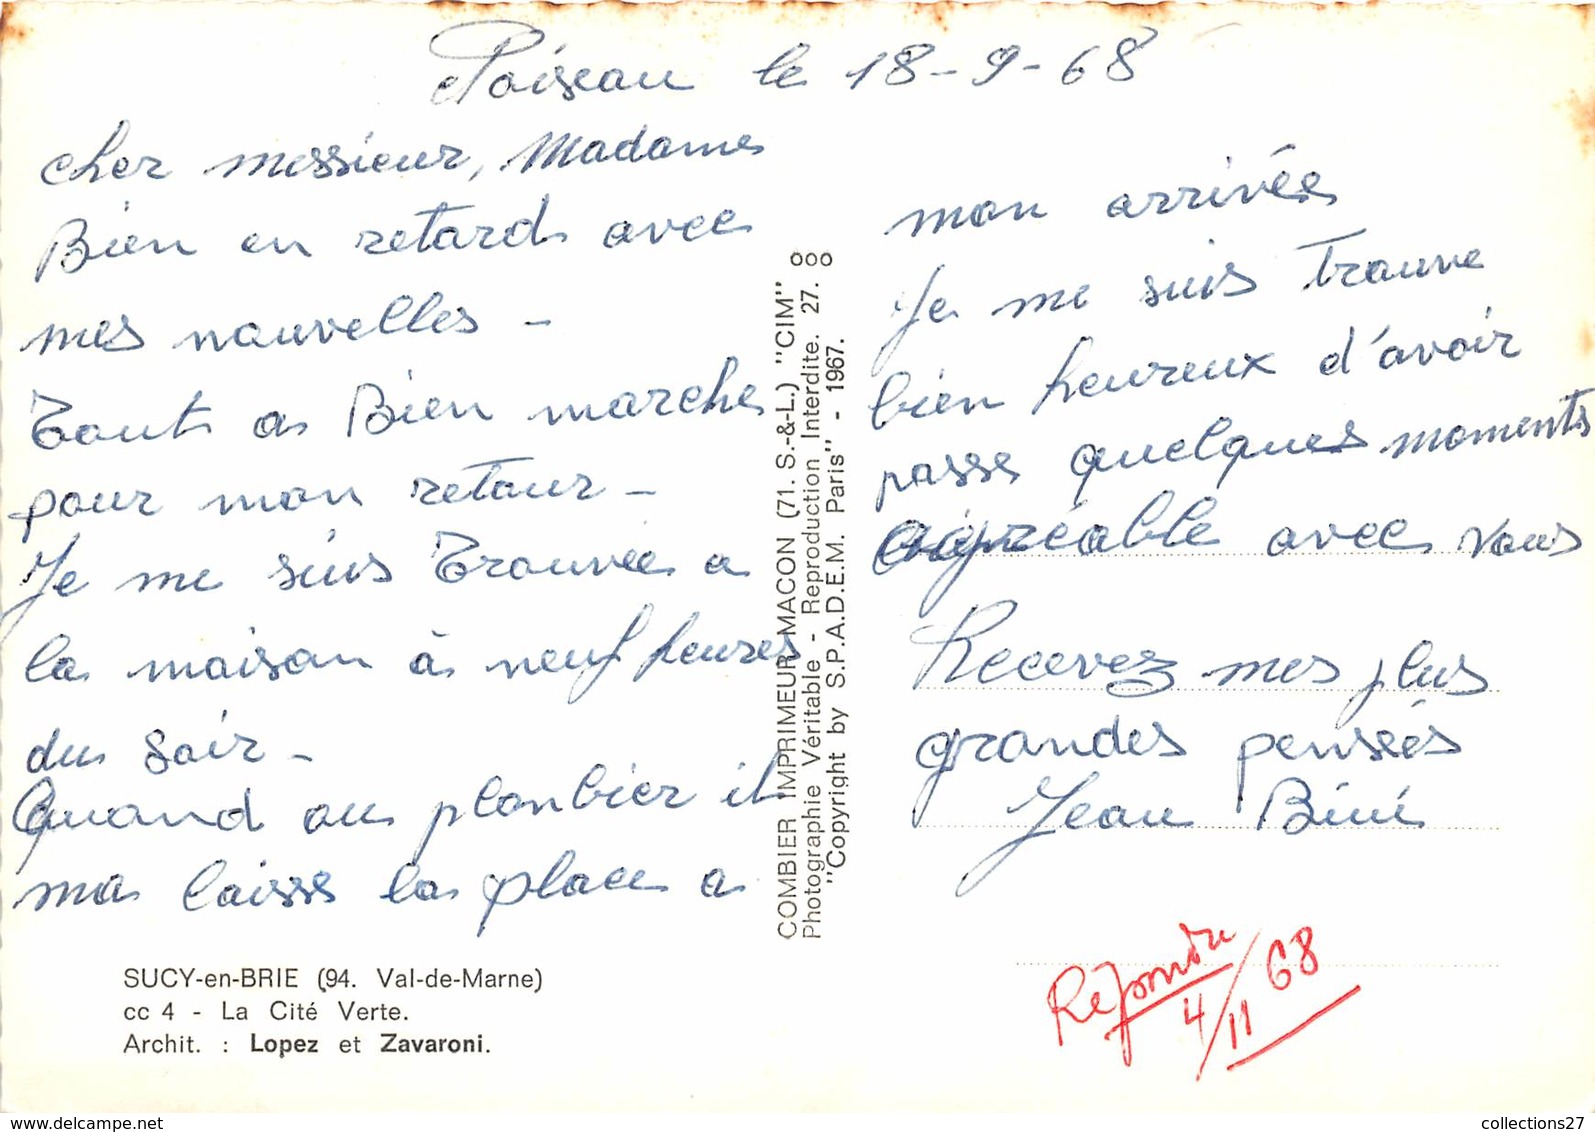 Noiseau le 18-9-68
cher messieur, Madame
Bien en retard avec
mes nouvelles -
Tout a Bien marche
pour mon retour -
Je me suis Trouvée a
la maison à neuf heures
du soir -
Quand au plonbier il
ma laisse la place a
SUCY-en-BRIE (94. Val-de-Marne)
cc 4 - La Cité Verte.
Archit. : Lopez et Zavaroni.
COMBIER IMPRIMEUR MACON (71. S.-&-L.) "CIM"
Photographie Véritable - Reproduction Interdite. 27.
"Copyright by S.P.A.D.E.M. Paris" - 1967.
mon arrivée
Je me suis trouve
bien heureux d'avoir
passe quelques moments
agréable avec vous
Recevez mes plus
grandes pensées
Jean
Répondu
4/11 68
collections27